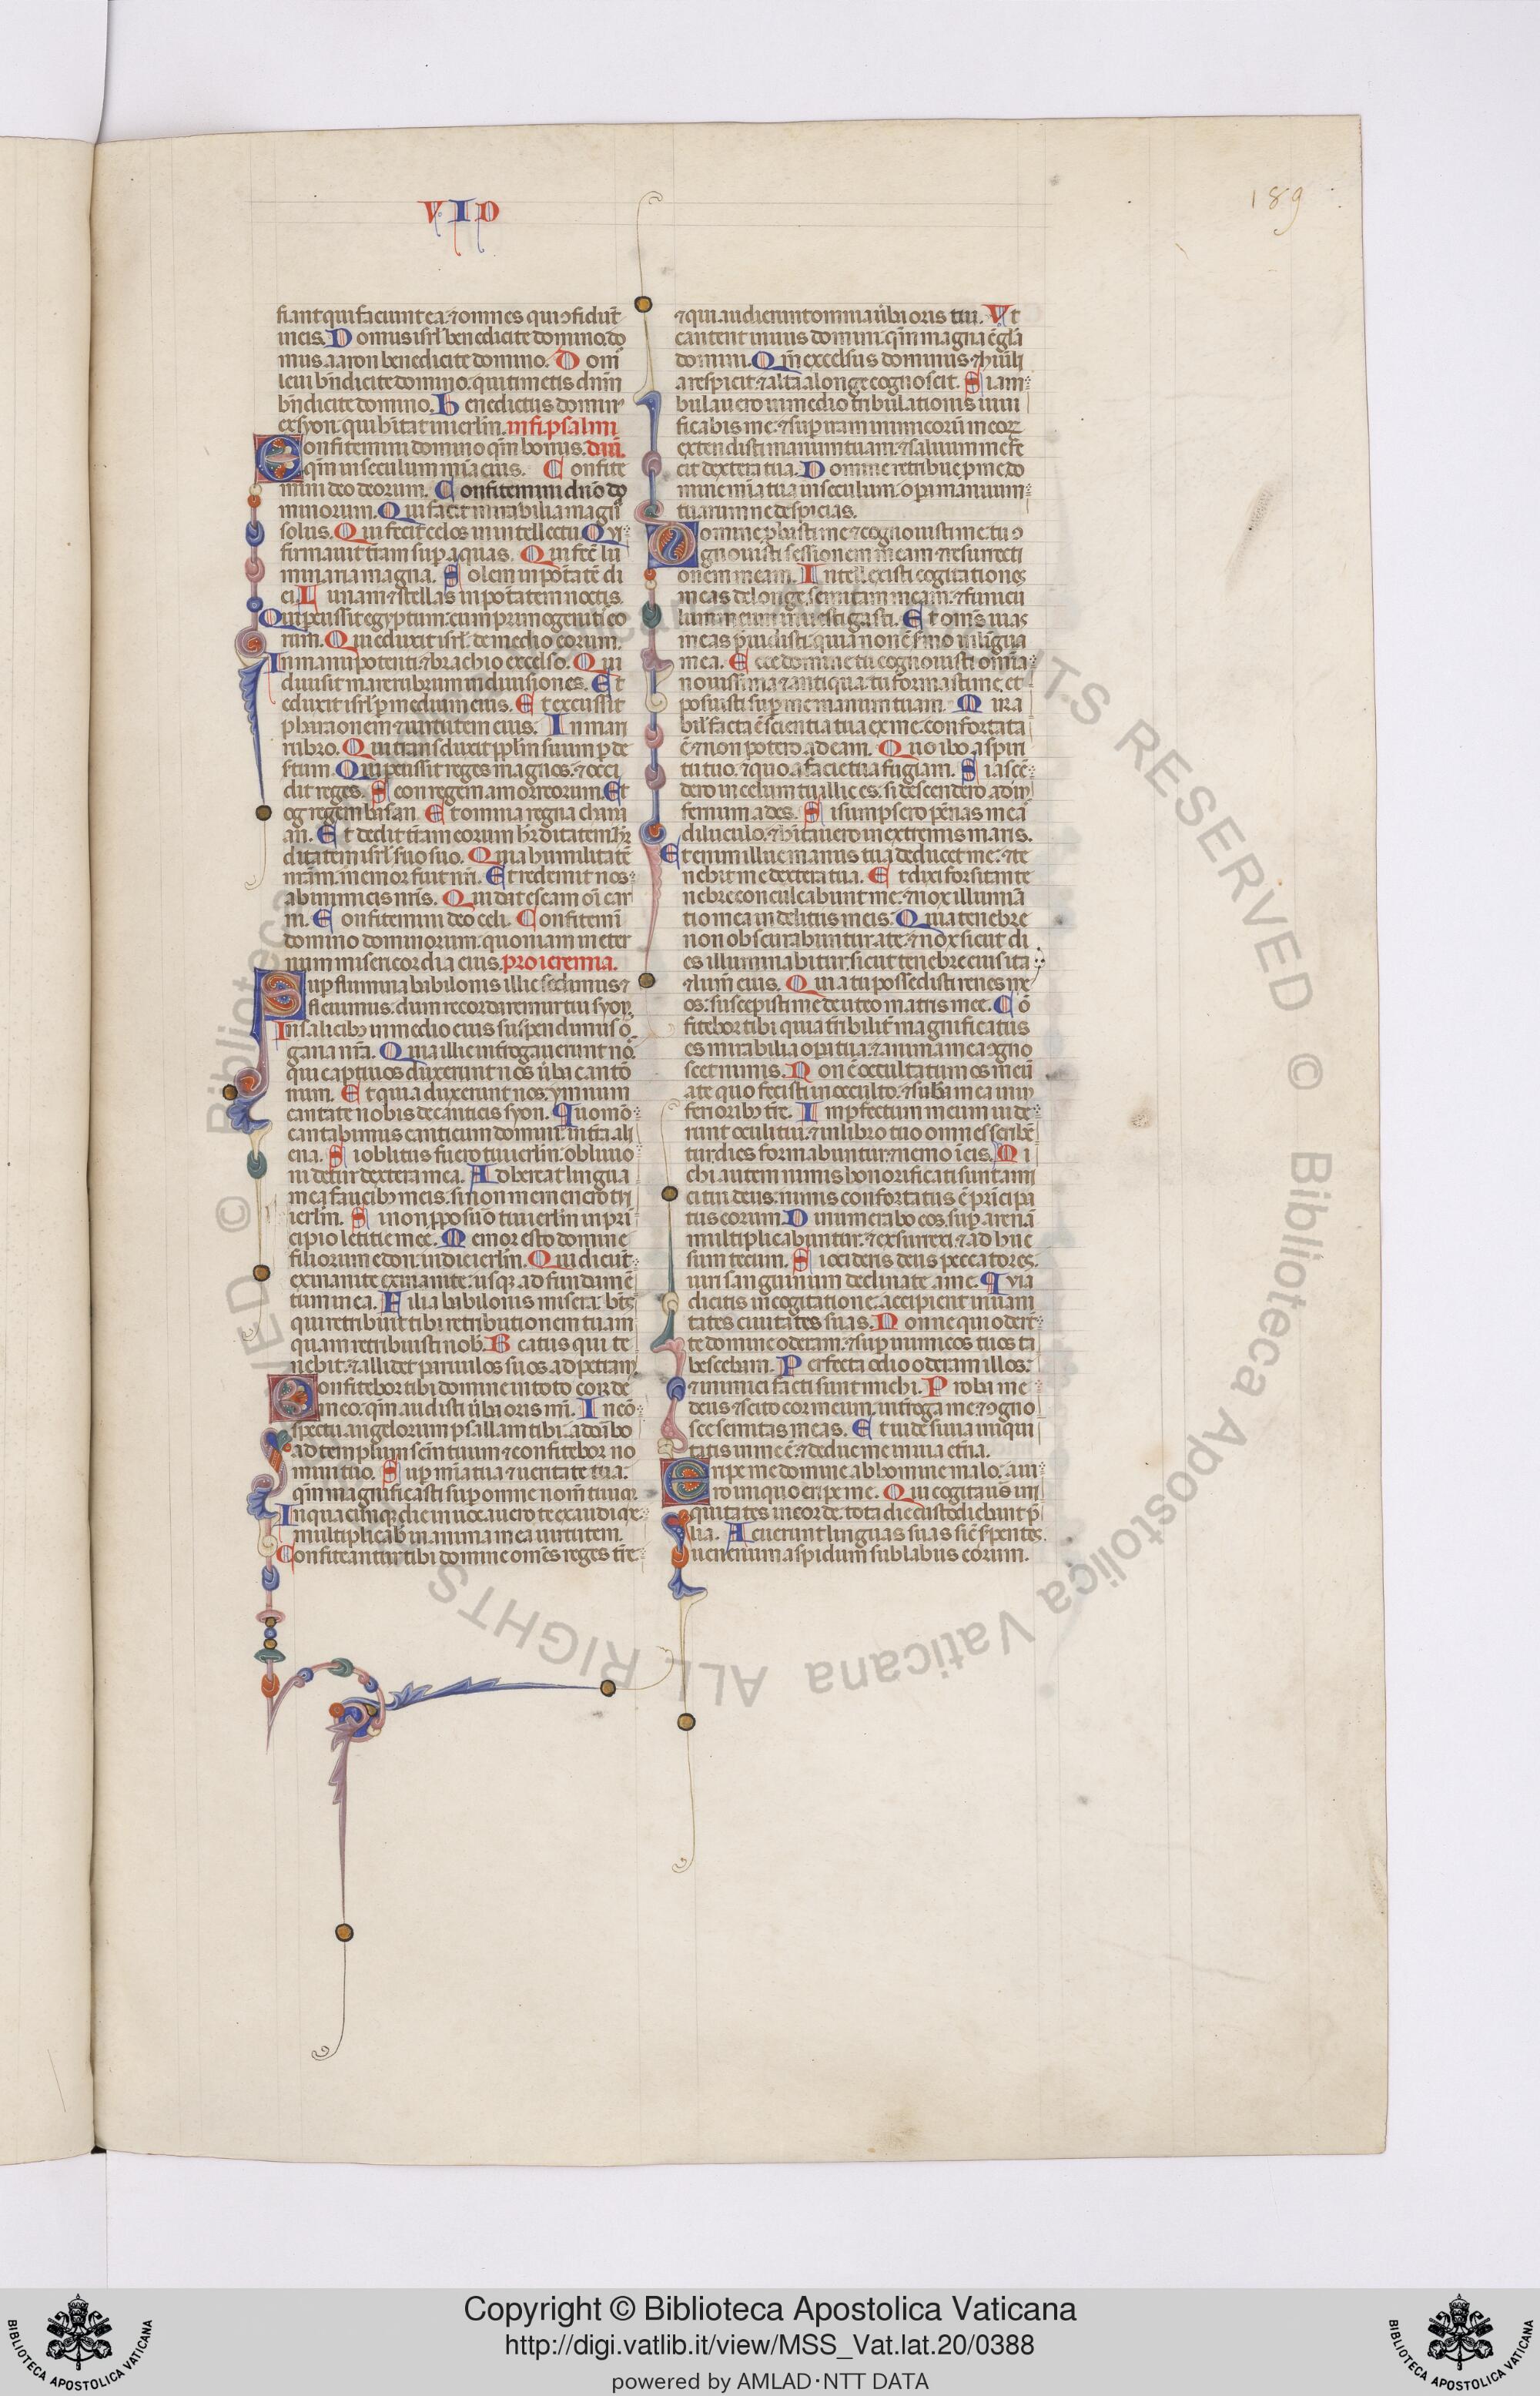 VID
189
fiant qui faciunt ea. ⁊ omnes qui ɔfidūt
in eis. Domus isrl̄ benedicite domino. do
mus aaron benedicite domino. Dom̄
leui bn̄dicite domino. qui timetis dn̄m
bn̄dicite domino. Benedictus domin᷒
ex syon. qui hītat in ierl̄m. in fi. psalmi
Confitemini domino qm̄ bonus. dauid.
qm̄ in seculum mīa eius. Confite
mini deo deorum. Confitemini dn̄o do
minorum. Qui facit mirabilia magn̄
solus. Qui fecit celos in intellectu Qui
firmauit t̄ram sup aquas. Qui fec̄ lu
minaria magna. Solem in potātē di
ei. Lunam ⁊ stellas in potātem noctis.
Qui percussit egyptum. cum primogenitis eo
rum. Qui eduxit isrl̄. de medio eorum.
In manu potenti. ⁊ brachio excelso. Qui
diuisit mare rubrum in diuisiones. Et
eduxit isrl̄ p medium eius. Et excussit
pharaonem ⁊ uirtutem eius. In mari
rubro. Qui transduxit ppl̄m suum p de
s̄tum. Qui percussit reges magnos. ⁊ occi
dit reges. Seon regem amorreorum. Et
og regem basan. Et omnia regna chana
an. Et dedit t̄ram eorum hr̄ditatem. hr̄
ditatem isrl̄ suo suo. Quia humilitatē
nr̄am. memor fuit nr̄i. Et redemit nos
ab inimicis nr̄is. Qui dat escam om̄i car
ni. Confitemini deo celi. Confitemī
domino dominorum. quoniam in eter
num misericordia eius. pro ieremia.
Sup flumina babilonis illic sedimus ⁊
fleuimus. dum recordaremur tui syon.
In salicib᷒ in medio eius suspendimus or
gana nr̄a. Quia illic int̄rogauerunt nos.
qui captiuos duxerunt nos. ūba canto
num. Et qui aduxerunt nos. ymnum
cantate nobis de canticis syon. Quomō
cantabimus canticum domini. in t̄ra ali
ena. Si oblitus fuero tui ierl̄m. obliuio
ni detur dextera mea. Adhereat lingua
mea faucib᷒ meis. si non meminero tui
ierl̄m. Si non pposuō tui ierl̄m in prin
cipio letitie mee. Memor esto domine
filiorum edom. in die ierl̄m. Qui dicūt
exinanite exinanite. usq᷒ ad fundamē
tum in ea. Filia babilonis misera. bt̄s
qui retribuit tibi retributionem tuam
quam retribuisti nob᷒. Beatus qui te
nebit. ⁊ allidet paruulos suos ad petram
Confitebor tibi domine in toto corde
meo. qm̄ audisti ūba oris mei. In cō
spectu angelorum psallam tibi. adorabo
ad templum scm̄ tuum ⁊ confitebor no
mini tuo. Sup mīa tua ⁊ ueritate tua.
qm̄ magnificasti sup omne nom̄ tuum.
In quacumq᷒ die inuocauero te exaudi me.
multiplicab᷒ in anima mea uirtutem.
Confiteantur tibi domine om̄s reges t̄re
⁊ qui audierunt omnia ūba oris tui. Vt
cantent in uiis domini. qm̄ magna ē gl̄a
domini. Qm̄ excelsus dominus ⁊ humili
a respicit. ⁊ alta a longe cognoscit. Si am
bulauero in medio tribulationis uiui
ficabis me. ⁊ sup iram inimicorū meor᷒
extendisti manum tuam. ⁊ saluum me fe
cit dextera tua. Domine retribue p me. do
mine mīa tua in seculum. opa manuum
tuarum ne despicias.
Domine pbasti me ⁊ cognouisti me. tu ɔ
gnouisti sessionem meam ⁊ resurrecti
onem meam. Intellexisti cogitationes
meas de longe. semitam meam. ⁊ funicu
lum meum inuestigasti. Et om̄s uias
meas p̄uidisti. quia non ē s̄mo in lingua
mea. Ecce domine tu cognouisti omnia
nouissima ⁊ antiqua. tu formasti me. et
posuisti sup me manum tuam. Mira
bil᷒ facta ē scientia tua ex me. confortata
ē ⁊ non potero ad eam. Quo ibo a spiri
tu tuo. ⁊ quo a facie tua fugiam. Si ascē
dero in celum tu illic es. si descendero ad in
fernum ades. Si sumpsero pennas meas
diluculo. ⁊ hītauero in extremis maris.
Etenim illuc manus tua deducet me. ⁊ te
nebit me dextera tua. Et dixi forsitan te
nebre conculcabunt me. ⁊ nox illumina
tio mea in delitiis meis. Quia tenebre
non obscurabuntur a te. ⁊ nox sicut di
es illuminabitur. sicut tenebre eius ita
⁊ lum̄ eius. Quia tu possedisti renes me
os. suscepisti me de utero matris mee. Cō
fitebor tibi quia t̄ribilit̄ magnificatus
es mirabilia opa tua. ⁊ anima mea ɔgno
scet nimis. Non ē occultatum os meū
a te quod fecisti in occulto. ⁊ sub̄a mea in in
ferioribus t̄re. Impfectum meum uide
runt oculi tui. ⁊ in libro tuo omnes scribē
tur. dies formabuntur. ⁊ nemo in eis. Mi
chi autem nimis honorificati sunt ami
ci tui deus. nimis confortatus ē prīcipa
tus eorum. Dinumerabo eos. sup arenā
multiplicabuntur. ⁊ exsurrexi ⁊ adhuc
sum tecum. Si occideris deus peccatores.
uiri sanguinum declinate a me. Quia
dicitis in cogitatione. accipient in uani
tates ciuitates suas. Nonne qui oderūt
te domine oderam. ⁊ sup inimicos tuos ta
bescebam. Perfecta odio oderam illos.
⁊ inimici facti sunt michi. Proba me
deus ⁊ scito cor meum. int̄roga me ⁊ ɔgno
sce semitas meas. Et uide si uia iniqui
tatis in me ē. ⁊ deduc me in uia et̄na.
Eripe me domine ab homine malo. a ui
ro iniquo eripe me. Qui cogitauer̄ ini
quitates in corde. tota die custodiebunt p̄
lia. Acuerunt linguas suas sic̄ serpentes.
uenenum aspidum sub labiis eorum.
Copyright © Biblioteca Apostolica Vaticana
http://digi.vatlib.it/view/MSS_Vat.lat.20/0388
powered by AMLAD·NTT DATA
BIBLIOTECA APOSTOLICA VATICANA
BIBLIOTECA APOSTOLICA VATICANA